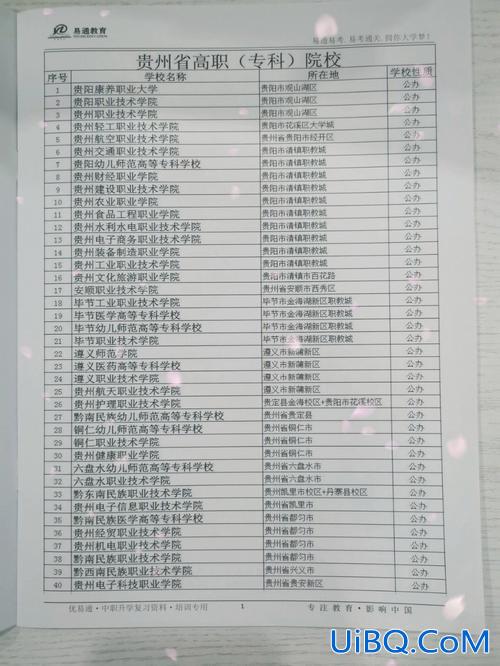 易通教育
易通易考、易考通关、圆你大学梦！
贵州省高职（专科）院校
序号 学校名称 所在地 学校性质
1 贵阳康养职业大学 贵阳市观山湖区 公办
2 贵阳职业技术学院 贵阳市观山湖区 公办
3 贵州职业技术学院 贵阳市观山湖区 公办
4 贵州轻工职业技术学院 贵阳市花溪区大学城 公办
5 贵州航空职业技术学院 贵州省贵阳市经开区 公办
6 贵州交通职业技术学院 贵阳市清镇职教城 公办
7 贵阳幼儿师范高等专科学校 贵阳市清镇职教城 公办
8 贵州财经职业学院 贵阳市清镇职教城 公办
9 贵州建设职业技术学院 贵阳市清镇职教城 公办
10 贵州农业职业学院 贵阳市清镇职教城 公办
11 贵州食品工程职业学院 贵阳市清镇职教城 公办
12 贵州水利水电职业技术学院 贵阳市清镇职教城 公办
13 贵州电子商务职业技术学院 贵阳市清镇职教城 公办
14 贵州装备制造职业学院 贵阳市清镇职教城 公办
15 贵州工业职业技术学院 贵阳市清镇职教城 公办
16 贵州文化旅游职业学院 贵阳市清镇市百花路 公办
17 安顺职业技术学院 贵州省安顺市西秀区 公办
18 毕节工业职业技术学院 毕节市金海湖新区职教城 公办
19 毕节医学高等专科学校 毕节市金海湖新区职教城 公办
20 毕节幼儿师范高等专科学校 毕节市金海湖新区职教城 公办
21 毕节职业技术学院 毕节市金海湖新区职教城 公办
22 遵义师范学院 遵义市新蒲新区 公办
23 遵义医药高等专科学校 遵义市新蒲新区 公办
24 遵义职业技术学院 遵义市新蒲新区 公办
25 贵州航天职业技术学院 遵义市新蒲新区 公办
26 贵州护理职业技术学院 贵定县金海校区+贵阳市花溪校区 公办
27 黔南民族幼儿师范高等专科学校 贵州省贵定县 公办
28 铜仁幼儿师范高等专科学校 贵州省铜仁市 公办
29 铜仁职业技术学院 贵州省铜仁市 公办
30 贵州健康职业学院 贵州省铜仁市 公办
31 六盘水幼儿师范高等专科学校 贵州省六盘水市 公办
32 六盘水职业技术学院 贵州省六盘水市 公办
33 黔东南民族职业技术学院 贵州凯里市校区+丹寨县校区 公办
34 贵州电子信息职业技术学院 贵州省凯里市 公办
35 黔南民族医学高等专科学校 贵州省都匀市 公办
36 贵州经贸职业技术学院 贵州省都匀市 公办
37 贵州机电职业技术学院 贵州省都匀市 公办
38 黔南民族职业技术学院 贵州省都匀市 公办
39 黔西南民族职业技术学院 贵州省兴义市 公办
40 贵州电子科技职业学院 贵州省贵安新区 公办
优易通·中职升学复习资料·培训专用 1 专注教育·影响中国
UiBQ.CoM